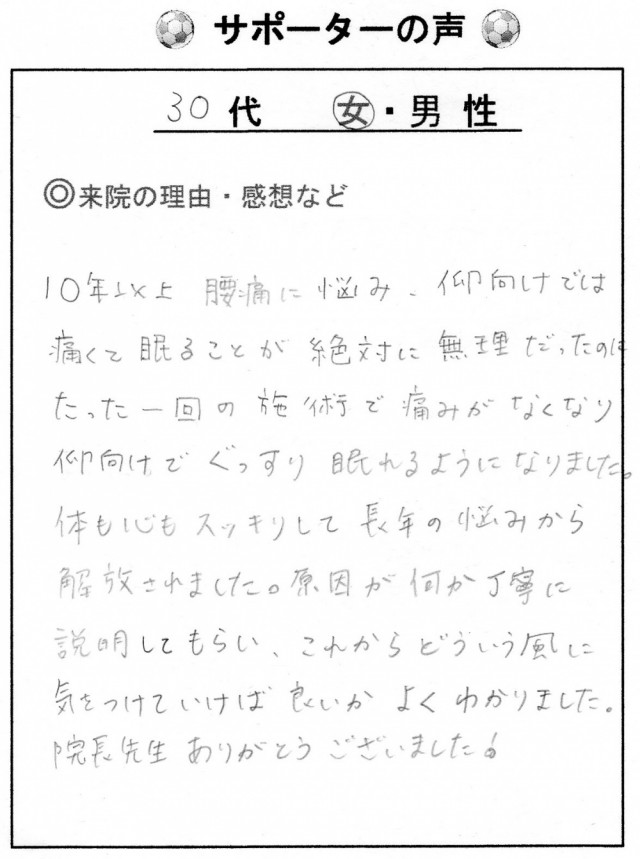 サポーターの声
30代 女・男性
◎来院の理由・感想など
10年以上 腰痛に悩み、仰向けでは
痛くて眠ることが絶対に無理だったのに
たった一回の施術で痛みがなくなり
仰向けでぐっすり眠れるようになりました。
体も心もスッキリして長年の悩みから
解放されました。原因が何か丁寧に
説明してもらい、これからどういう風に
気をつけていけば良いかよくわかりました。
院長先生ありがとうございました!